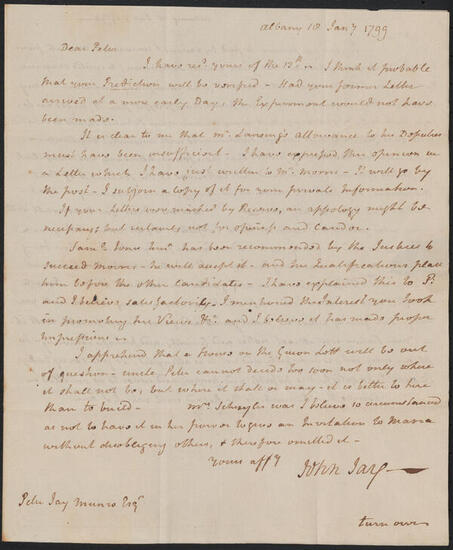 Albany 18 Jany 1799
Dear Peter
I have recd. yours of the 12th. I think it probable
that your Prediction will be verified – Had your former Letter
arrived at a more early Day, the Experiment would not have
been made.
It is clear to me that Mr. Lansing's allowance to his Deputies
must have been insufficient – I have expressed this opinion in
a Letter which I have just written to Mr. Morris – It will go by
the post – I subjoin a copy of it for your private Information.
If your Letters were marked by Reserve, an apology might be
necessary; but certainly not for openness and Candor.
Saml. Jones Junr. has been recommended by the Justices to
succeed Morris – he will accept it – and his Qualifications place
him before the other Candidates – I have explained this to
and I believe satisfactorily. I mentioned the Interest you took
in promoting his Views &c. and I believe it has made proper
Impressions –
I apprehend that a House on the Lott will be out
of question – uncle Peter cannot decide too soon not only where
it shall not be, but where it shall or may – it is better to hire
than to build – Mrs. Schuyler was I believe so circumstanced
as not to have it in her power to give an Invitation to Maria
without disobliging others, & therefore omitted it –
yours affy
John Jay
Peter Jay Munro Esqr
turn over